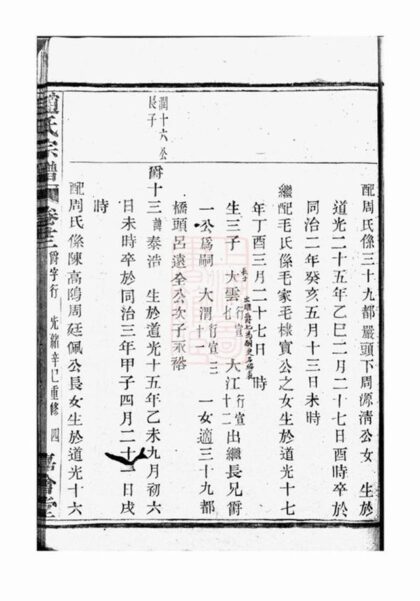 配周氏係三十九都嚴頭下周源清公女 生於
道光二十五年乙巳二月二十七日酉時卒於
同治二年癸亥五月十三日未時
繼配毛氏係毛家毛棣實公之女生於道光十七
年丁酉三月二十七日 時
生三子 大雲 行宣七 長子出繼 大江 行宣十二 出繼長兄爵
一公爲嗣 大渭 行宣 一女適三十九都
橋頭呂遠全公次子永裕
潤十六公
長子
爵十三 諱泰浩 生於道光十五年乙未九月初六
日未時卒於同治三年甲子四月二十一日戌
時
配周氏係陳高陽周廷佩公長女生於道光十六
氏宗譜 卷十三 爵字行 光緒辛巳重修 四 會堂